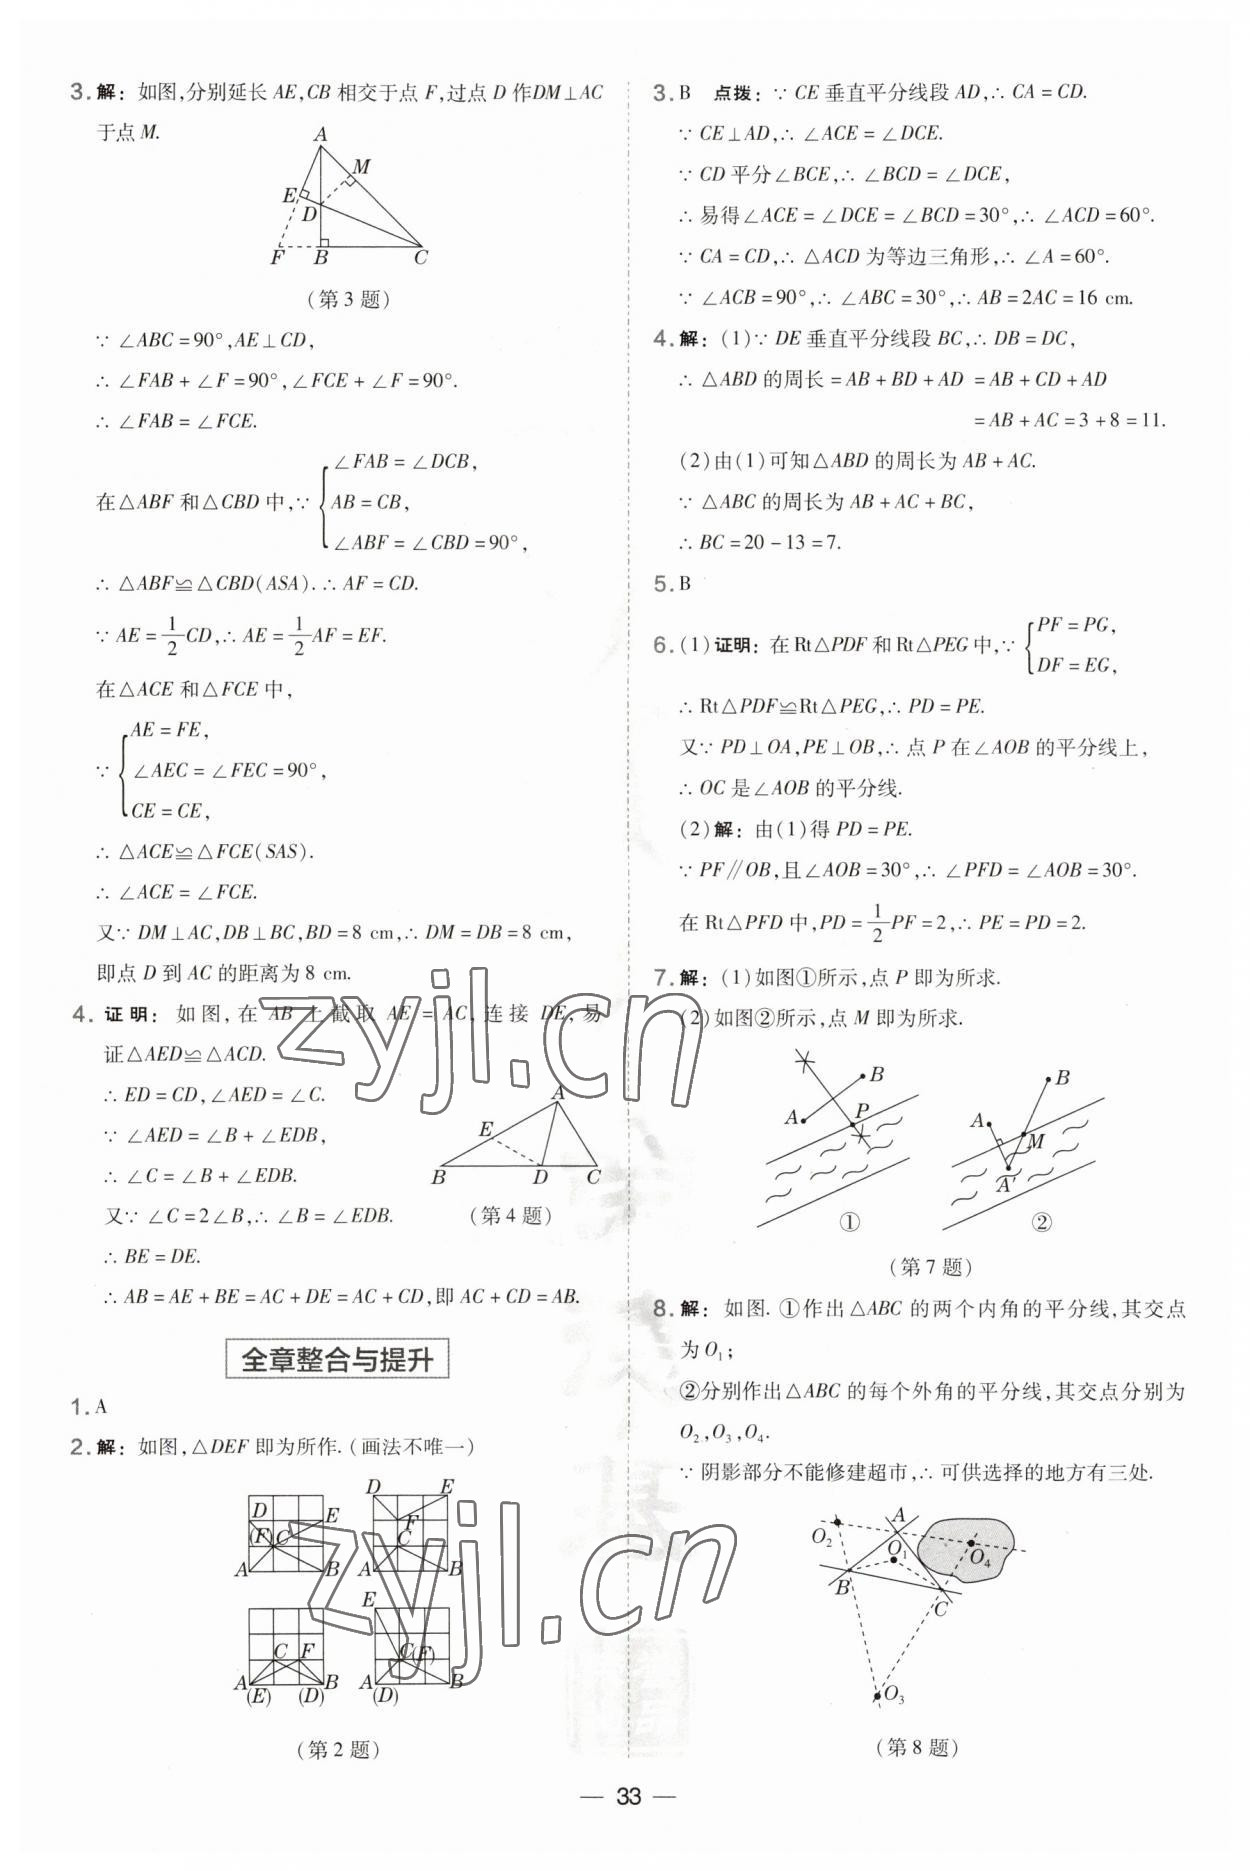 3. 解：如图,分别延长 AE,CB 相交于点 F,过点 D 作DM⊥AC
于点 M.
A
M
E
D
F B C
(第 3 题)
∵ ∠ABC=90°,AE⊥CD,
∴ ∠FAB+∠F=90°,∠FCE+∠F=90°.
∴ ∠FAB=∠FCE.
∠FAB=∠DCB,
在△ABF 和△CBD 中,∵ { AB=CB,
∠ABF=∠CBD=90°,
∴ △ABF≌△CBD(ASA).∴ AF=CD.
∵ AE=1/2CD,∴ AE=1/2AF=EF.
在△ACE 和△FCE 中,
AE=FE,
∵ { ∠AEC=∠FEC=90°,
CE=CE,
∴ △ACE≌△FCE(SAS).
∴ ∠ACE=∠FCE.
又∵ DM⊥AC,DB⊥BC,BD=8 cm,∴ DM=DB=8 cm,
即点 D 到 AC 的距离为 8 cm.
4. 证明：如图,在 AB 上截取 AE=AC,连接 DE,易
证△AED≌△ACD.
∴ ED=CD,∠AED=∠C.
∵ ∠AED=∠B+∠EDB,
∴ ∠C=∠B+∠EDB.
又∵ ∠C=2∠B,∴ ∠B=∠EDB.
∴ BE=DE.
∴ AB=AE+BE=AC+DE=AC+CD,即 AC+CD=AB.
A
E
B D C
(第 4 题)
全章整合与提升
1. A
2. 解：如图,△DEF 即为所作.(画法不唯一)
D E
(F) C
A B
D E
F
C
A B
C F
A B
(E) (D)
E
C(F)
A B
(D)
(第 2 题)
3. B 点拨：∵ CE 垂直平分线段 AD,∴ CA=CD.
∵ CE⊥AD,∴ ∠ACE=∠DCE.
∵ CD 平分∠BCE,∴ ∠BCD=∠DCE,
∴ 易得∠ACE=∠DCE=∠BCD=30°,∴ ∠ACD=60°.
∵ CA=CD,∴ △ACD 为等边三角形,∴ ∠A=60°.
∵ ∠ACB=90°,∴ ∠ABC=30°,∴ AB=2AC=16 cm.
4. 解：(1)∵ DE 垂直平分线段 BC,∴ DB=DC,
∴ △ABD 的周长=AB+BD+AD=AB+CD+AD
=AB+AC=3+8=11.
(2)由(1)可知△ABD 的周长为 AB+AC.
∵ △ABC 的周长为 AB+AC+BC,
∴ BC=20-13=7.
5. B
PF=PG,
6. (1)证明：在 Rt△PDF 和 Rt△PEG 中,∵ {
DF=EG,
∴ Rt△PDF≌Rt△PEG,∴ PD=PE.
又∵ PD⊥OA,PE⊥OB,∴ 点 P 在∠AOB 的平分线上,
∴ OC 是∠AOB 的平分线.
(2)解：由(1)得 PD=PE.
∵ PF∥OB,且∠AOB=30°,∴ ∠PFD=∠AOB=30°.
在 Rt△PFD 中,PD=1/2PF=2,∴ PE=PD=2.
7. 解：(1)如图①所示,点 P 即为所求.
(2)如图②所示,点 M 即为所求.
B
A P
①
B
A M
A'
②
(第 7 题)
8. 解：如图. ①作出△ABC 的两个内角的平分线,其交点
为 O₁；
②分别作出△ABC 的每个外角的平分线,其交点分别为
O₂,O₃,O₄.
∵ 阴影部分不能修建超市,∴ 可供选择的地方有三处.
A
O₂ O₁ O₄
B C
O₃
(第 8 题)
— 33 —
zyjl.cn
zyjl.cn